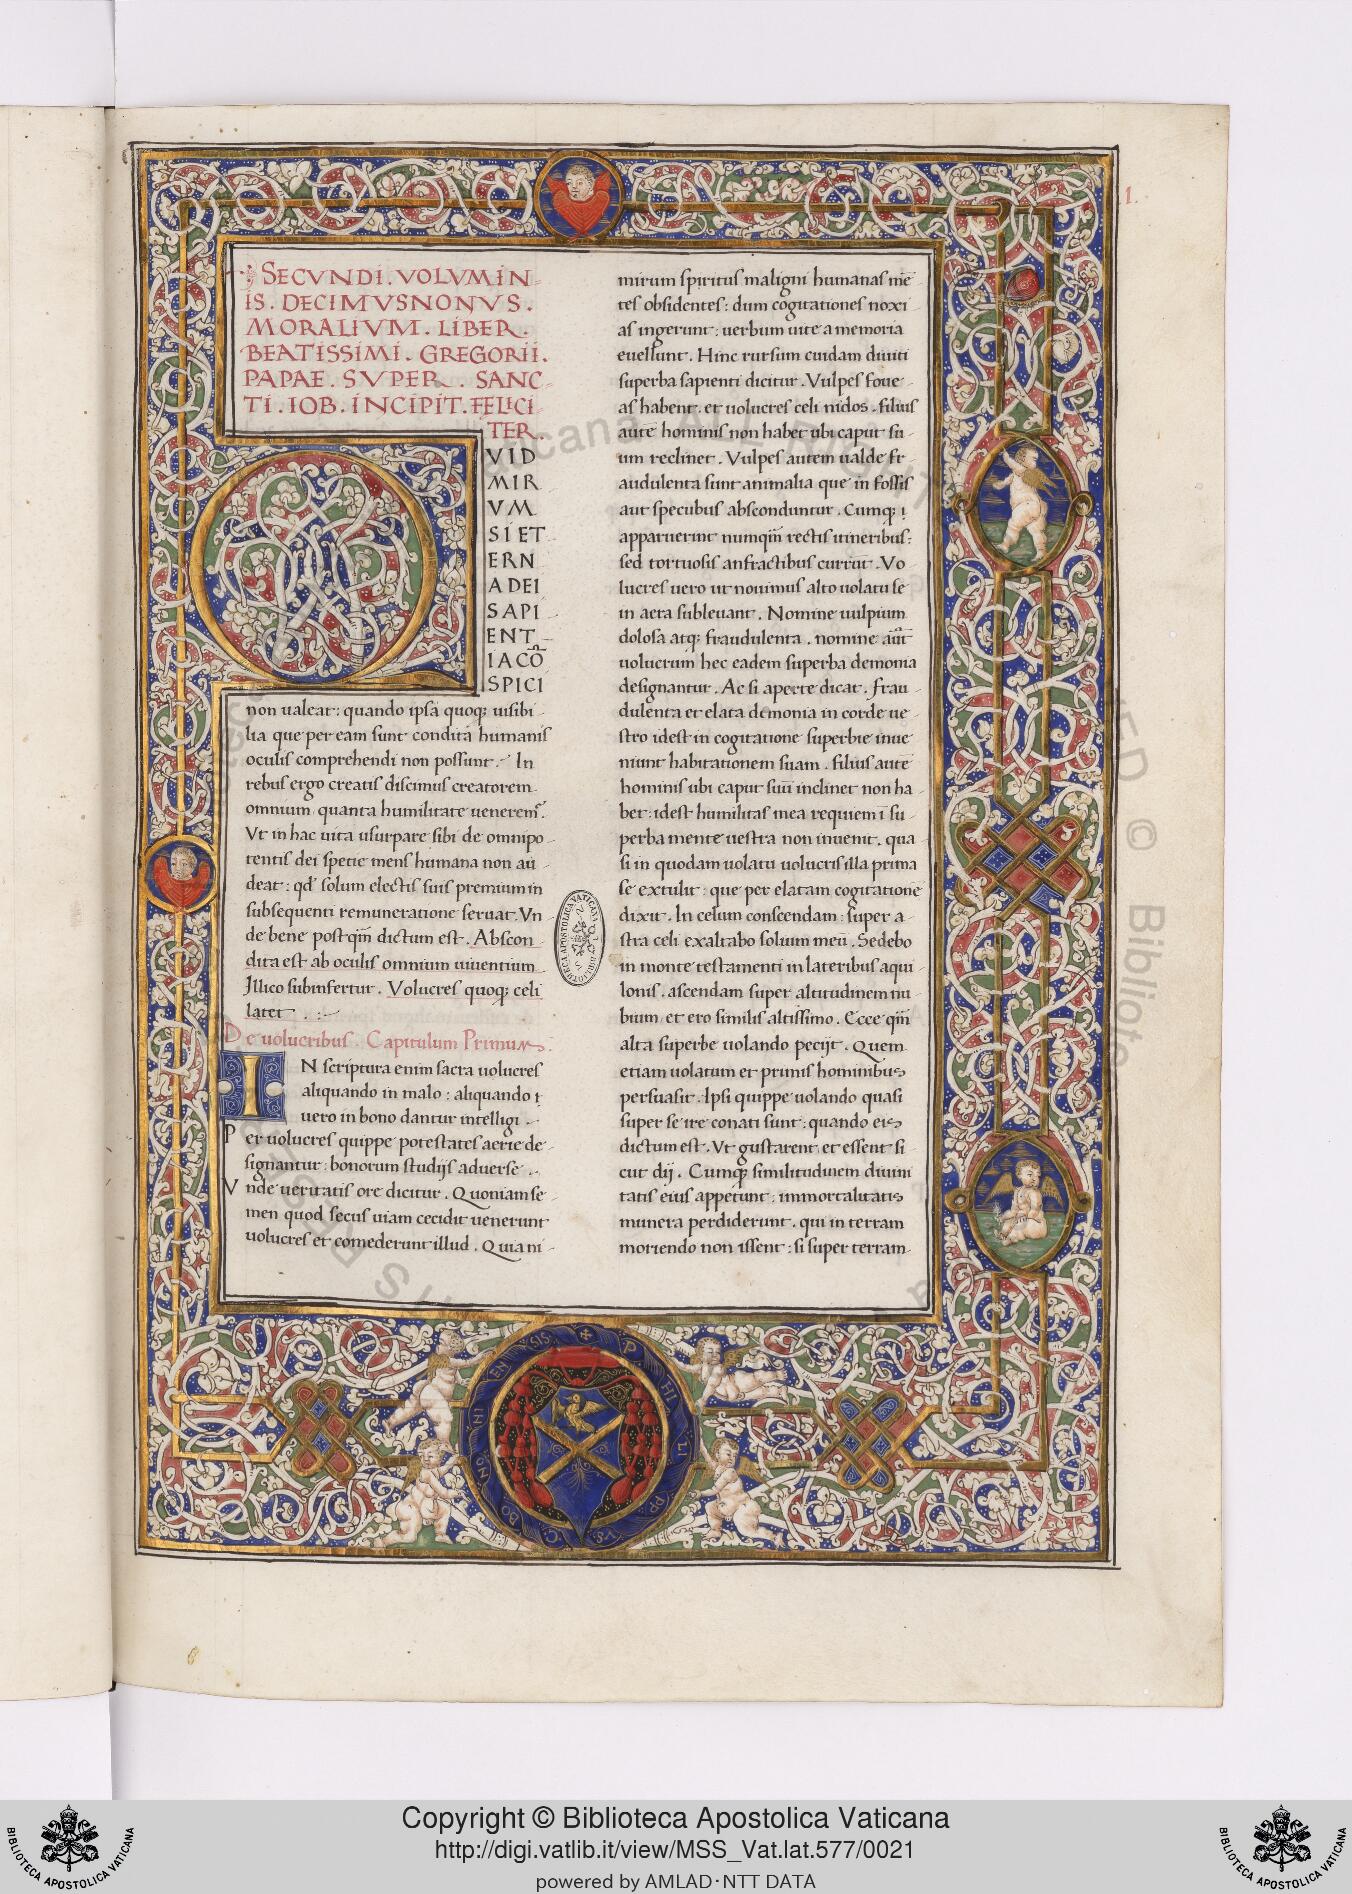 SECVNDI . VOLVMIN-
IS . DECIMVSNONVS .
MORALIVM . LIBER .
BEATISSIMI . GREGORII .
PAPAE . SVPER . SANC-
TI . IOB . INCIPIT . FELICI-
TER .
QVID
MIR
VM
SI ET
ERN
A DEI
SAPI
ENT-
IA CO͂
SPICI
non ualeat: quando ipsa quoq; uisibi-
lia que per eam sunt condita humanis
oculis comprehendi non possunt . In
rebus ergo creatis discimus creatorem
omnium quanta humilitate ueneremꝰ.
Vt in hac uita usurpare sibi de omnipo-
tentis dei specie mens humana non au-
deat: qd̓ solum electis suis premium in
subsequenti remuneratione seruat. Vn-
de bene postqm̄ dictum est . Abscon-
dita est ab oculis omnium uiuentium
Illico subinfertur . Volucres quoq; celi
latet .
De uolucribus . Capitulum Primum.
IN scriptura enim sacra uolucres
aliquando in malo: aliquando
uero in bono dantur intelligi .
Per uolucres quippe potestates aerie de-
signantur: bonorum studijs aduerse .
Vnde ueritatis ore dicitur . Quoniam se-
men quod secus uiam cecidit uenerunt
uolucres et comederunt illud . Quia ni-
mirum spiritus maligni humanas mē-
tes obsidentes: dum cogitationes noxi-
as ingerunt: uerbum uite a memoria
euellunt . Hinc rursum cuidam diuiti
superba sapienti dicitur . Vulpes foue-
as habent . et uolucres celi nidos . filius
autē hominis non habet ubi caput su-
um reclinet . Vulpes autem ualde fr-
audulenta sunt animalia que in fossis
aut specubus absconduntur . Cumq;
apparuerint numqm̄ rectis itineribus:
sed tortuosis anfractibus currūt . Vo-
lucres uero ut nouimus alto uolatu se
in aera subleuant . Nomine uulpium
dolosa atq; fraudulenta . nomine aūt
uolucrum hec eadem superba demonia
designantur . Ac si aperte dicat . frau-
dulenta et elata demonia in corde ue-
stro idest in cogitatione superbie inue-
niunt habitationem suam . filius autē
hominis ubi caput suū inclinet non ha-
bet: idest humilitas mea requiem ī su-
perba mente uestra non inuenit . qua-
si in quodam uolatu uolucris illa prima
se extulit: que per elatam cogitationē
dixit . In celum conscendam: super a-
stra celi exaltabo solium meū . Sedebo
in monte testamenti in lateribus aqui-
lonis . ascendam super altitudinem nu-
bium et ero similis altissimo . Ecce qm̄
alta superbe uolando pecijt . Quem
etiam uolatum et primis hominibus
persuasit . Ipsi quippe uolando quasi
super se ire conati sunt: quando eis
dictum est . Vt gustarent et essent si-
cut dij . Cumq; similitudinem diuini-
tatis eius appetunt: immortalitatis
munera perdiderunt . qui in terram
moriendo non issent: si super terram
I.
PHILIPPVS . C . BONONIENSIS
BIBLIOTECA APOSTOLICA VATICANA
Copyright © Biblioteca Apostolica Vaticana
http://digi.vatlib.it/view/MSS_Vat.lat.577/0021
powered by AMLAD·NTT DATA
BIBLIOTECA APOSTOLICA VATICANA
BIBLIOTECA APOSTOLICA VATICANA